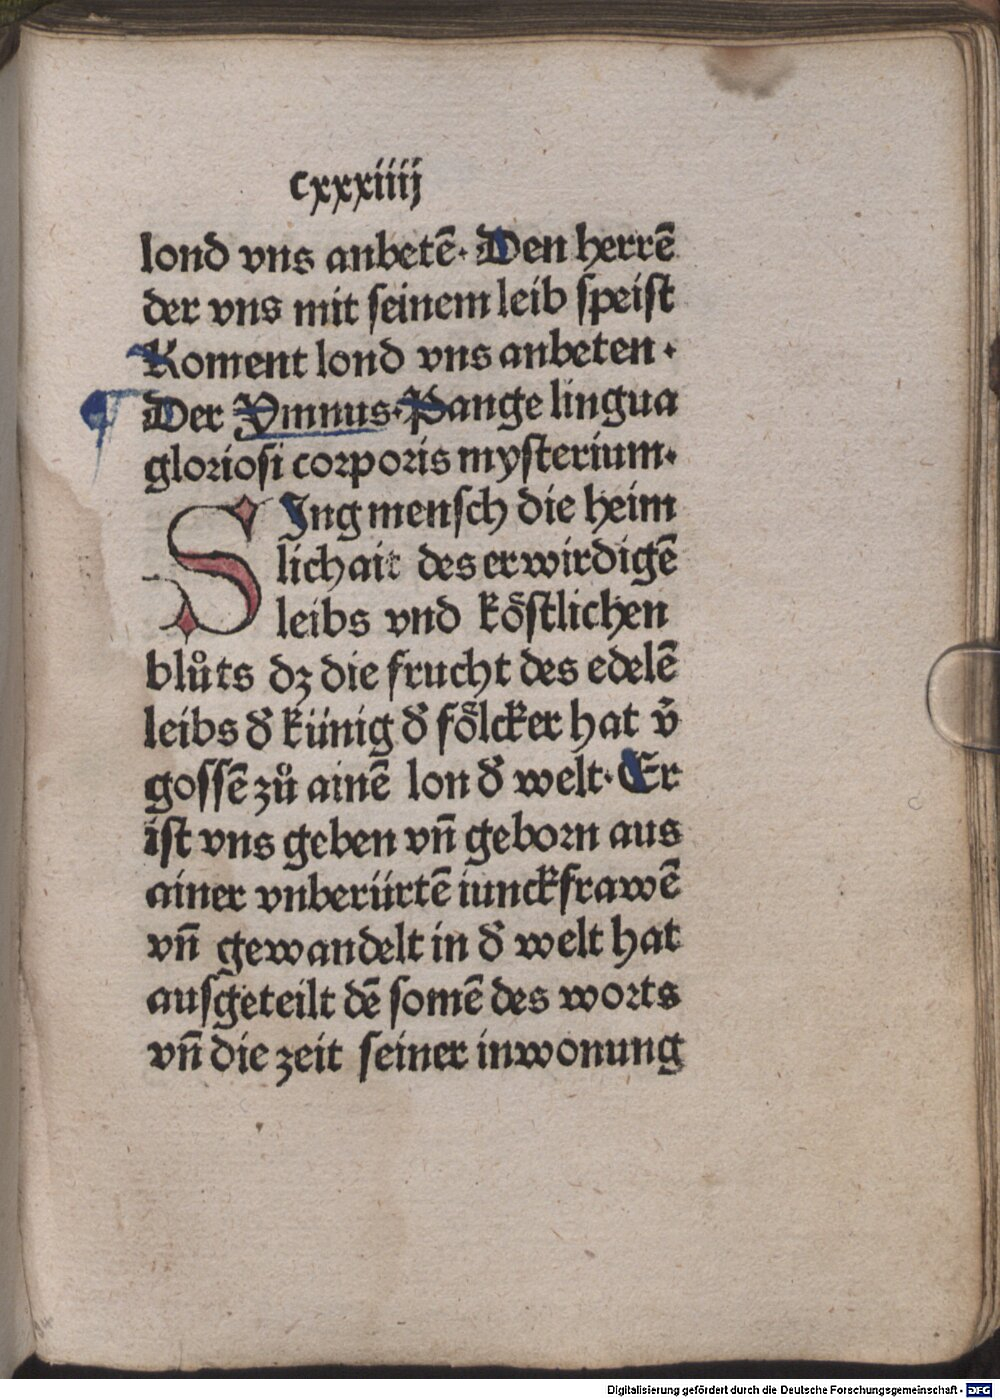 cxxxiiij
lond vns anbetē· Den herrē
der vns mit ſeinem leib ſpeiſt
Koment lond vns anbeten·
¶ Der Ymnus· Pange lingua
glorioſi corporis myſterium·
SIng menſch die heim
lichait des erwirdigē
leibs vnd koͤſtlichen
bluͦts dz die frucht des edelē
leibs đ künig đ foͤlcker hat v̄
goſſē zuͦ ainē lon đ welt· Er
iſt vns geben vn̄ geborn aus
ainer vnberürtē iunckfrawē
vn̄ gewandelt in đ welt hat
auſgeteilt dē ſomē des worts
vn̄ die zeit ſeiner inwonung
Digitalisierung gefördert durch die Deutsche Forschungsgemeinschaft - DFG